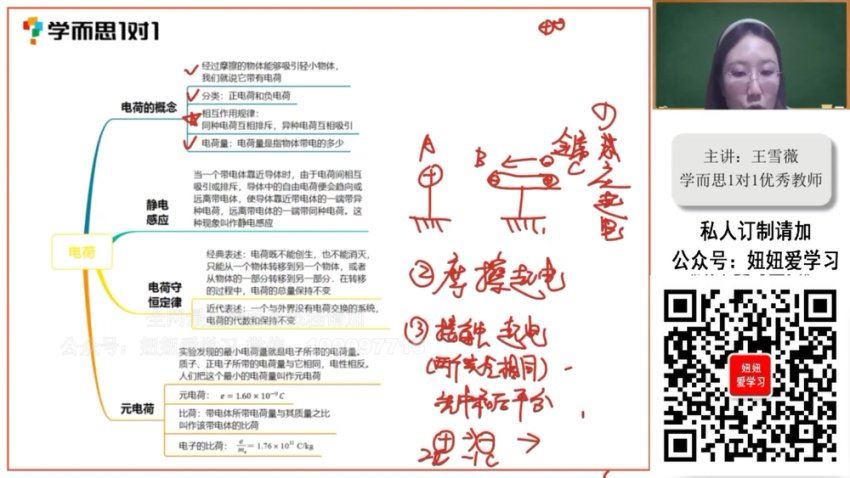 学而思1对1
经过摩擦的物体能够吸引轻小物体，
我们就说它带有电荷
电荷的概念
分类：正电荷和负电荷
相互作用规律：
同种电荷互相排斥，异种电荷互相吸引
电荷量：电荷量是指物体带电的多少
当一个带电体靠近导体时，由于电荷间相互
吸引或排斥，导体中的自由电荷便会趋向或
远离带电体，使导体靠近带电体的一端带异
种电荷，远离带电体的一端带同种电荷。这
种现象叫作静电感应
静电
感应
电荷
经典表述：电荷既不能创生，也不能消灭，
只能从一个物体转移到另一个物体，或者
从物体的一部分转移到另一部分．在转移
的过程中，电荷的总量保持不变
电荷守
恒定律
近代表述：一个与外界没有电荷交换的系统，
电荷的代数和保持不变
实验发现的最小电荷量就是电子所带的电荷量。
质子、正电子所带的电荷量与它相同，电性相反。
人们把这个最小的电荷量叫作元电荷
元电荷
元电荷： e = 1.60 × 10⁻¹⁹ C
比荷：带电体所带电荷量与其质量之比
叫作该带电体的比荷
电子的比荷： e/mₑ = 1.76 × 10¹¹ C/kg
A
B
金属
C
①感应起电
②摩擦起电
③接触起电
(两个完全相同)
先中和后平分
主讲：王雪薇
学而思1对1优秀教师
私人订制请加
公众号：妞妞爱学习
妞妞
爱学习